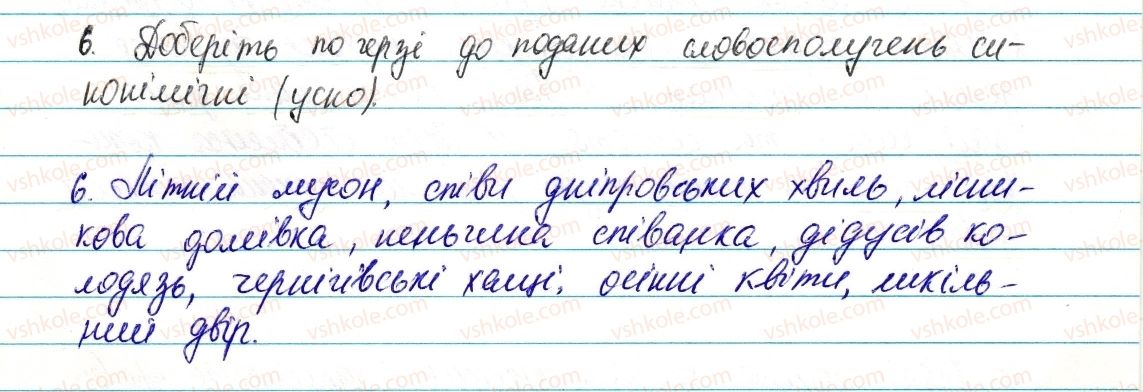 6. Доберіть по черзі до поданих словосполучень си-
нонімічні (усно).
6. Літній мусон, співи дніпровських хвиль, лісни-
кова домівка, неньчина співанка, дідусів ко-
лодязь, чернігівські хащі, осінні квіти, шкіль-
ний двір.